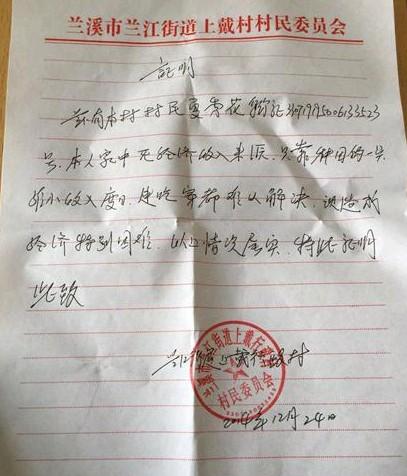 兰溪市兰江街道上戴村村民委员会
证明
兹有本村村民夏秀花
号、本人家中无经济收入来源、只靠种田的一点
小收入度日、连吃穿都难以解决、造成
经济特别困难、以上情况属实、特此证明
此致
兰江街道上戴行政村
村民委员会
2014年12月24日